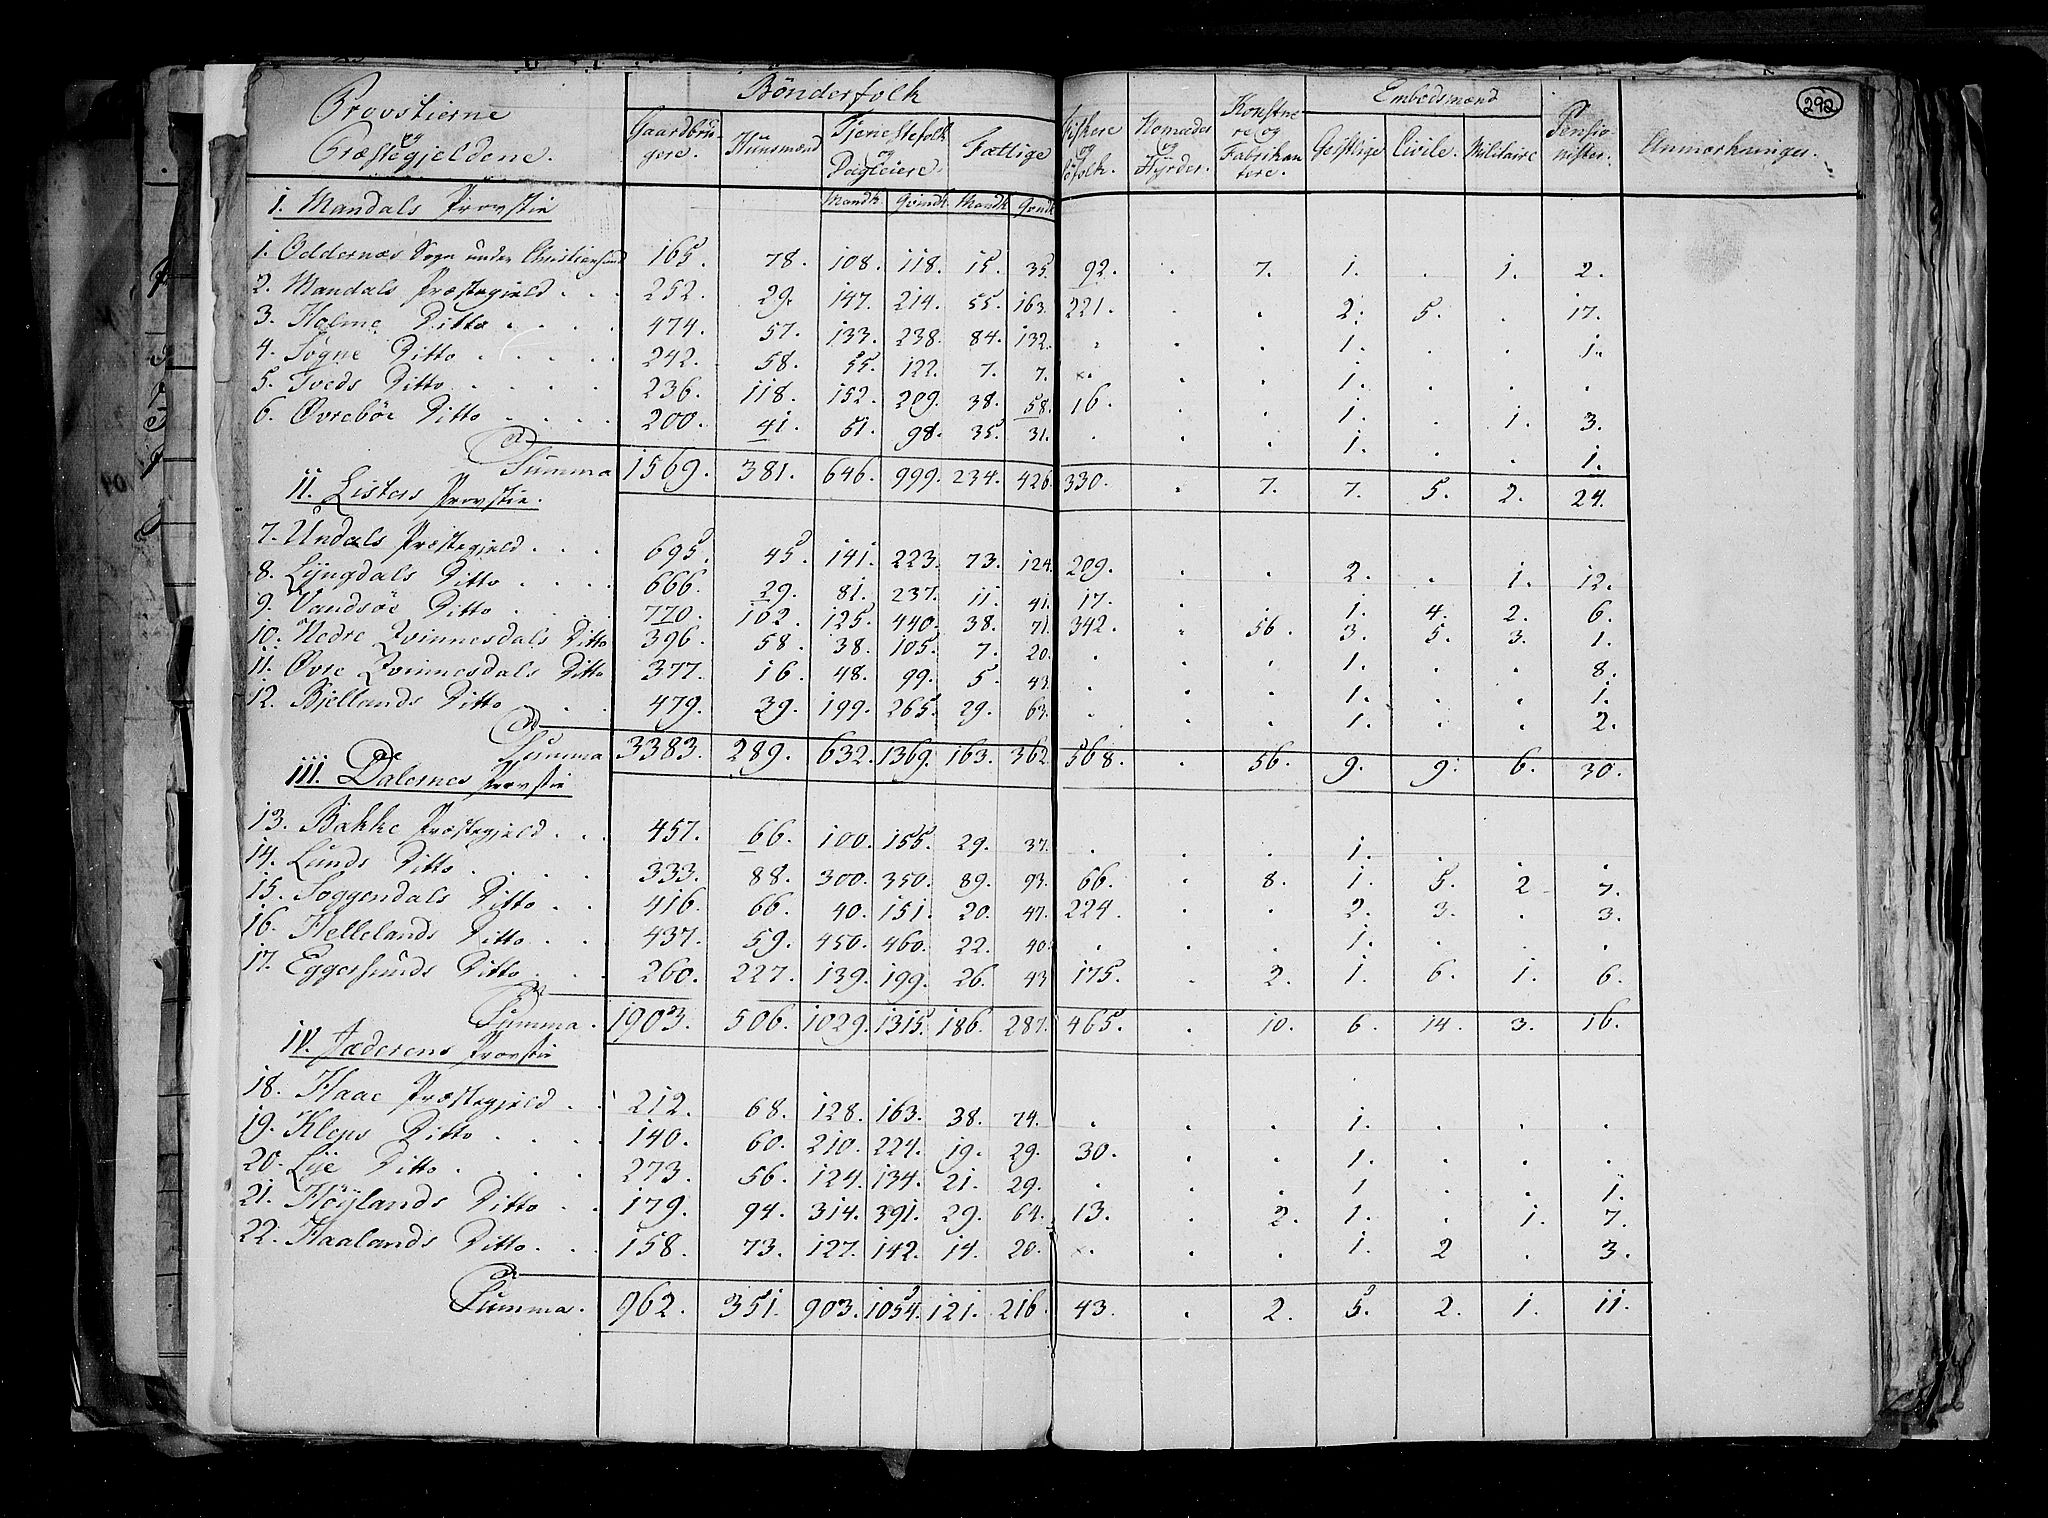 292
Provstierne og Præstegjeldene. | Bönderfolk | Fiskere og | Nomader og Hyrder. | Konstnere og Fabrikantere. | Embedsmænd | Pensionister. | Anmærkninger.
Gaardbrugere. | Huusmænd | Tjenestefolk og Dagleiere. | Fattige | Geistlige | Civile. | Militaire
Mandk. | Qvindk. | Mandk. | Qvindk.
1. Mandals Provstie
1. Oddernæs Sogn under Christiansand 165. 78. 108. 118. 15. 35. 92. . 7. 1. . 1. 2.
2. Mandals Præstegjeld . . 252. 29. 147. 214. 55. 163. 221. . . 2. 5. . 17.
3. Holme Ditto . . . . 474. 57. 133. 238. 84. 132. . . . 1. . . 1.
4. Sögne Ditto . . . . . 242. 58. 55. 122. 7. 7. . . . 1. . . .
5. Tveds Ditto . . . . 236. 118. 152. 209. 38. 58. 16. . . 1. . 1. 3.
6. Øvreböe Ditto . . . . 200. 41. 51. 98. 35. 31. . . . 1. . . 1.
Summa 1569. 381. 646. 999. 234. 426. 330. . 7. 7. 5. 2. 24.
II. Listers Provstie.
7. Undals Præstegjeld . . . 695. 45. 141. 223. 73. 124. 209. . . 2. . 1. 12.
8. Lyngdals Ditto . . . . 666. 29. 81. 237. 11. 41. 17. . . 1. 4. 2. 6.
9. Vandsöe Ditto . . . 770. 102. 125. 440. 38. 71. 342. . 56. 3. 5. 3. 1.
10. Nedre Qvinnesdals Ditto 396. 58. 38. 105. 7. 20. . . . 1. . . 8.
11. Øvre Qvinnesdals Ditto 377. 16. 48. 99. 5. 43. . . . 1. . . 1.
12. Bjellands Ditto . . 479. 39. 199. 265. 29. 63. . . . 1. . . 2.
Summa 3383. 289. 632. 1369. 163. 362. 568. . 56. 9. 9. 6. 30.
III. Dalernes Provstie
13. Bakke Præstegjeld . . . 457. 66. 100. 155. 29. 37. . . . 1. . . .
14. Lunds Ditto . . . . 333. 88. 300. 350. 89. 93. 66. . 8. 1. 5. 2 7.
15. Soggendals Ditto . . 416. 66. 40. 151. 20. 47. 224. . . 2. 3. . 3.
16. Hellelands Ditto . . . 437. 59. 450. 460. 22. 40. . . . 1. . . .
17. Eggersunds Ditto . . . 260. 227. 139. 199. 26. 43 175. . 2. 1. 6. 1. 6.
Summa. 1903. 506. 1029. 1315. 186. 287. 465. . 10. 6. 14. 3. 16.
IV. Jæderens Provstie
18. Haae Præstegjeld . . 212. 68. 128. 163. 38. 74. . . . 1. . . .
19. Kleps Ditto . . . . 140. 60. 210. 224. 19. 29. 30. . . 1. . . .
20. Lye Ditto . . . . 273. 56. 124. 134. 21. 29. . . . 1 . . 1.
21. Höylands Ditto . . 179. 94. 314. 391. 29. 64. 13. . 2. 1. . 1. 7.
22. Haalands Ditto . . . 158. 73. 127. 142. 14. 20. . . . 1. 2 . 3.
Summa. 962. 351. 903. 1054. 121. 216. 43. . 2. 5. 2. 1. 11.